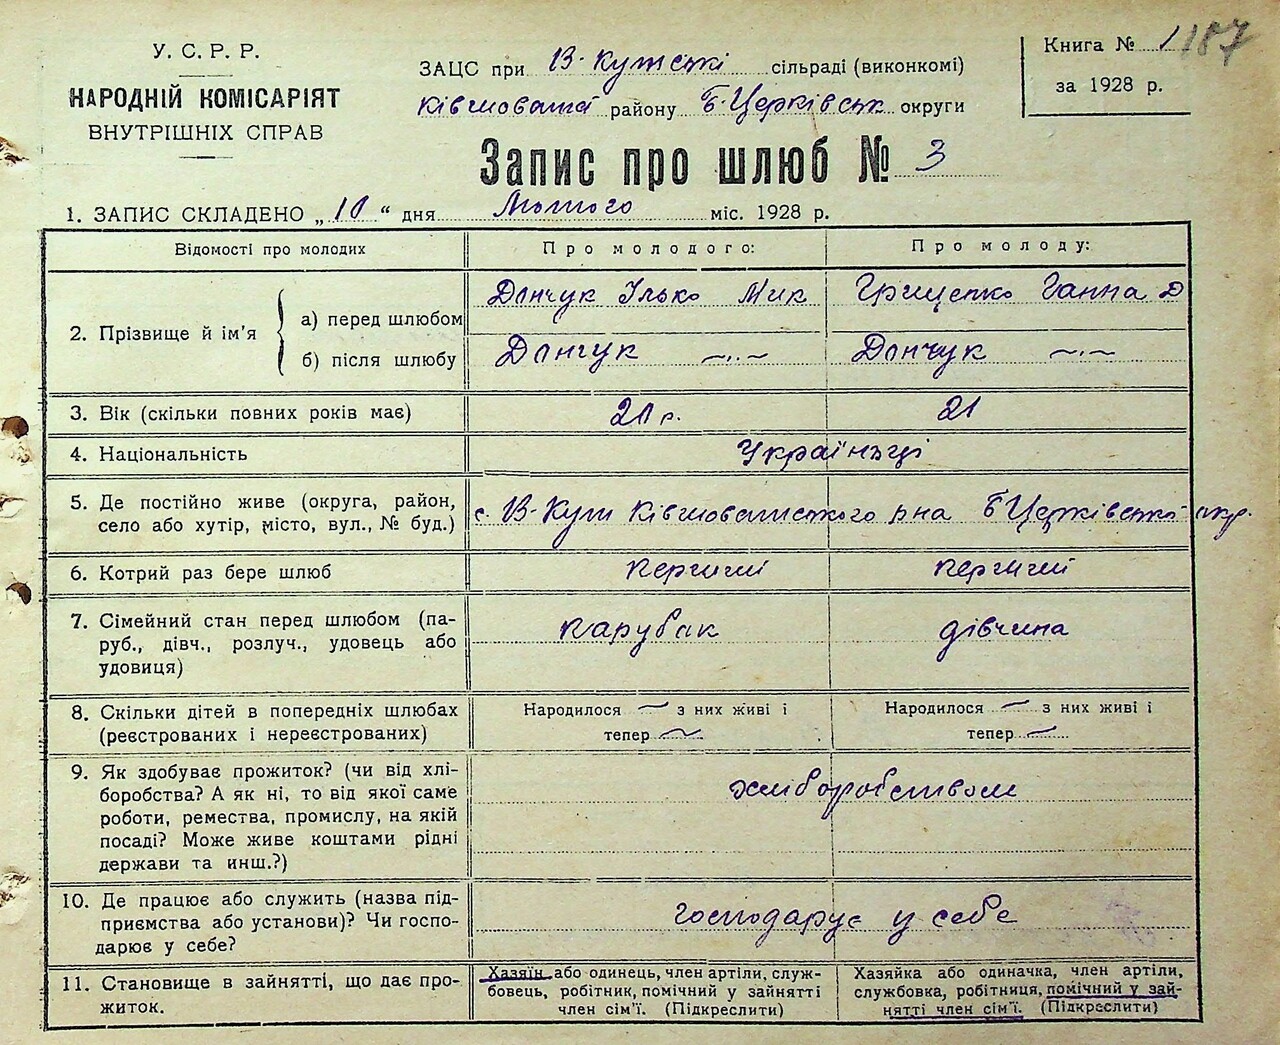 У. С. Р. Р.
НАРОДНІЙ КОМІСАРІЯТ
ВНУТРІШНІХ СПРАВ
ЗАЦС при В-Кутській сільраді (виконкомі)
Ківшоватої району Б-Церківськ округи
Книга № 1 187
за 1928 р.
Запис про шлюб № 3
1. ЗАПИС СКЛАДЕНО „10“ дня Лютого міс. 1928 р.
Відомості про молодих
Про молодого:
Про молоду:
2. Прізвище й ім’я
а) перед шлюбом
Дончук Ілько Мик
Грищенко Ганна Д
б) після шлюбу
Дончук
Дончук
3. Вік (скільки повних років має)
21 р.
21
4. Національність
Українці
5. Де постійно живе (округа, район,
село або хутір, місто, вул., № буд.)
с. В-Кут Ківшоватського рна Б Церківської окр.
6. Котрий раз бере шлюб
перший
перший
7. Сімейний стан перед шлюбом (па-
руб., дівч., розлуч., удовець або
удовиця)
парубак
дівчина
8. Скільки дітей в попередніх шлюбах
(реєстрованих і нереєстрованих)
Народилося — з них живі і
тепер —
Народилося — з них живі і
тепер —
9. Як здобуває прожиток? (чи від хлі-
боробства? А як ні, то від якої саме
роботи, ремества, промислу, на якій
посаді? Може живе коштами рідні
держави та инш.?)
хліборобством
10. Де працює або служить (назва під-
приємства або установи)? Чи госпо-
дарює у себе?
господарує у себе
11. Становище в зайнятті, що дає про-
житок.
Хазяїн або одинець, член артіли, служ-
бовець, робітник, помічний у зайнятті
член сім’ї. (Підкреслити)
Хазяйка або одиначка, член артіли,
службовка, робітниця, помічний у зай-
нятті член сім’ї. (Підкреслити)